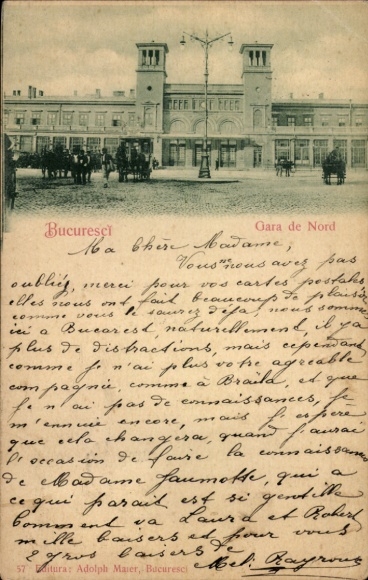 Bucuresci
Gara de Nord
Ma Chère Madame,
Vous ne nous avez pas
oubliés, merci pour vos cartes postales
elles nous ont fait beaucoup de plaisir
comme vous le saurez déja, nous sommes
ici a Bucarest, naturellement, il y a
plus de distractions, mais cependant
comme je n'ai plus votre agréable
compagnie, comme à Braïla, et que
je n'ai pas de connaissances, je
m'ennuie encore, mais j'espère
que cela changera, quand j'aurai
l'occasion de faire la connaissance
de Madame Jaumotte, qui a
ce qui parait est si gentille
Comment va Laura et Robert
mille baisers et pour vous
2 gros baisers de
57 Editura: Adolph Maier, Bucuresci